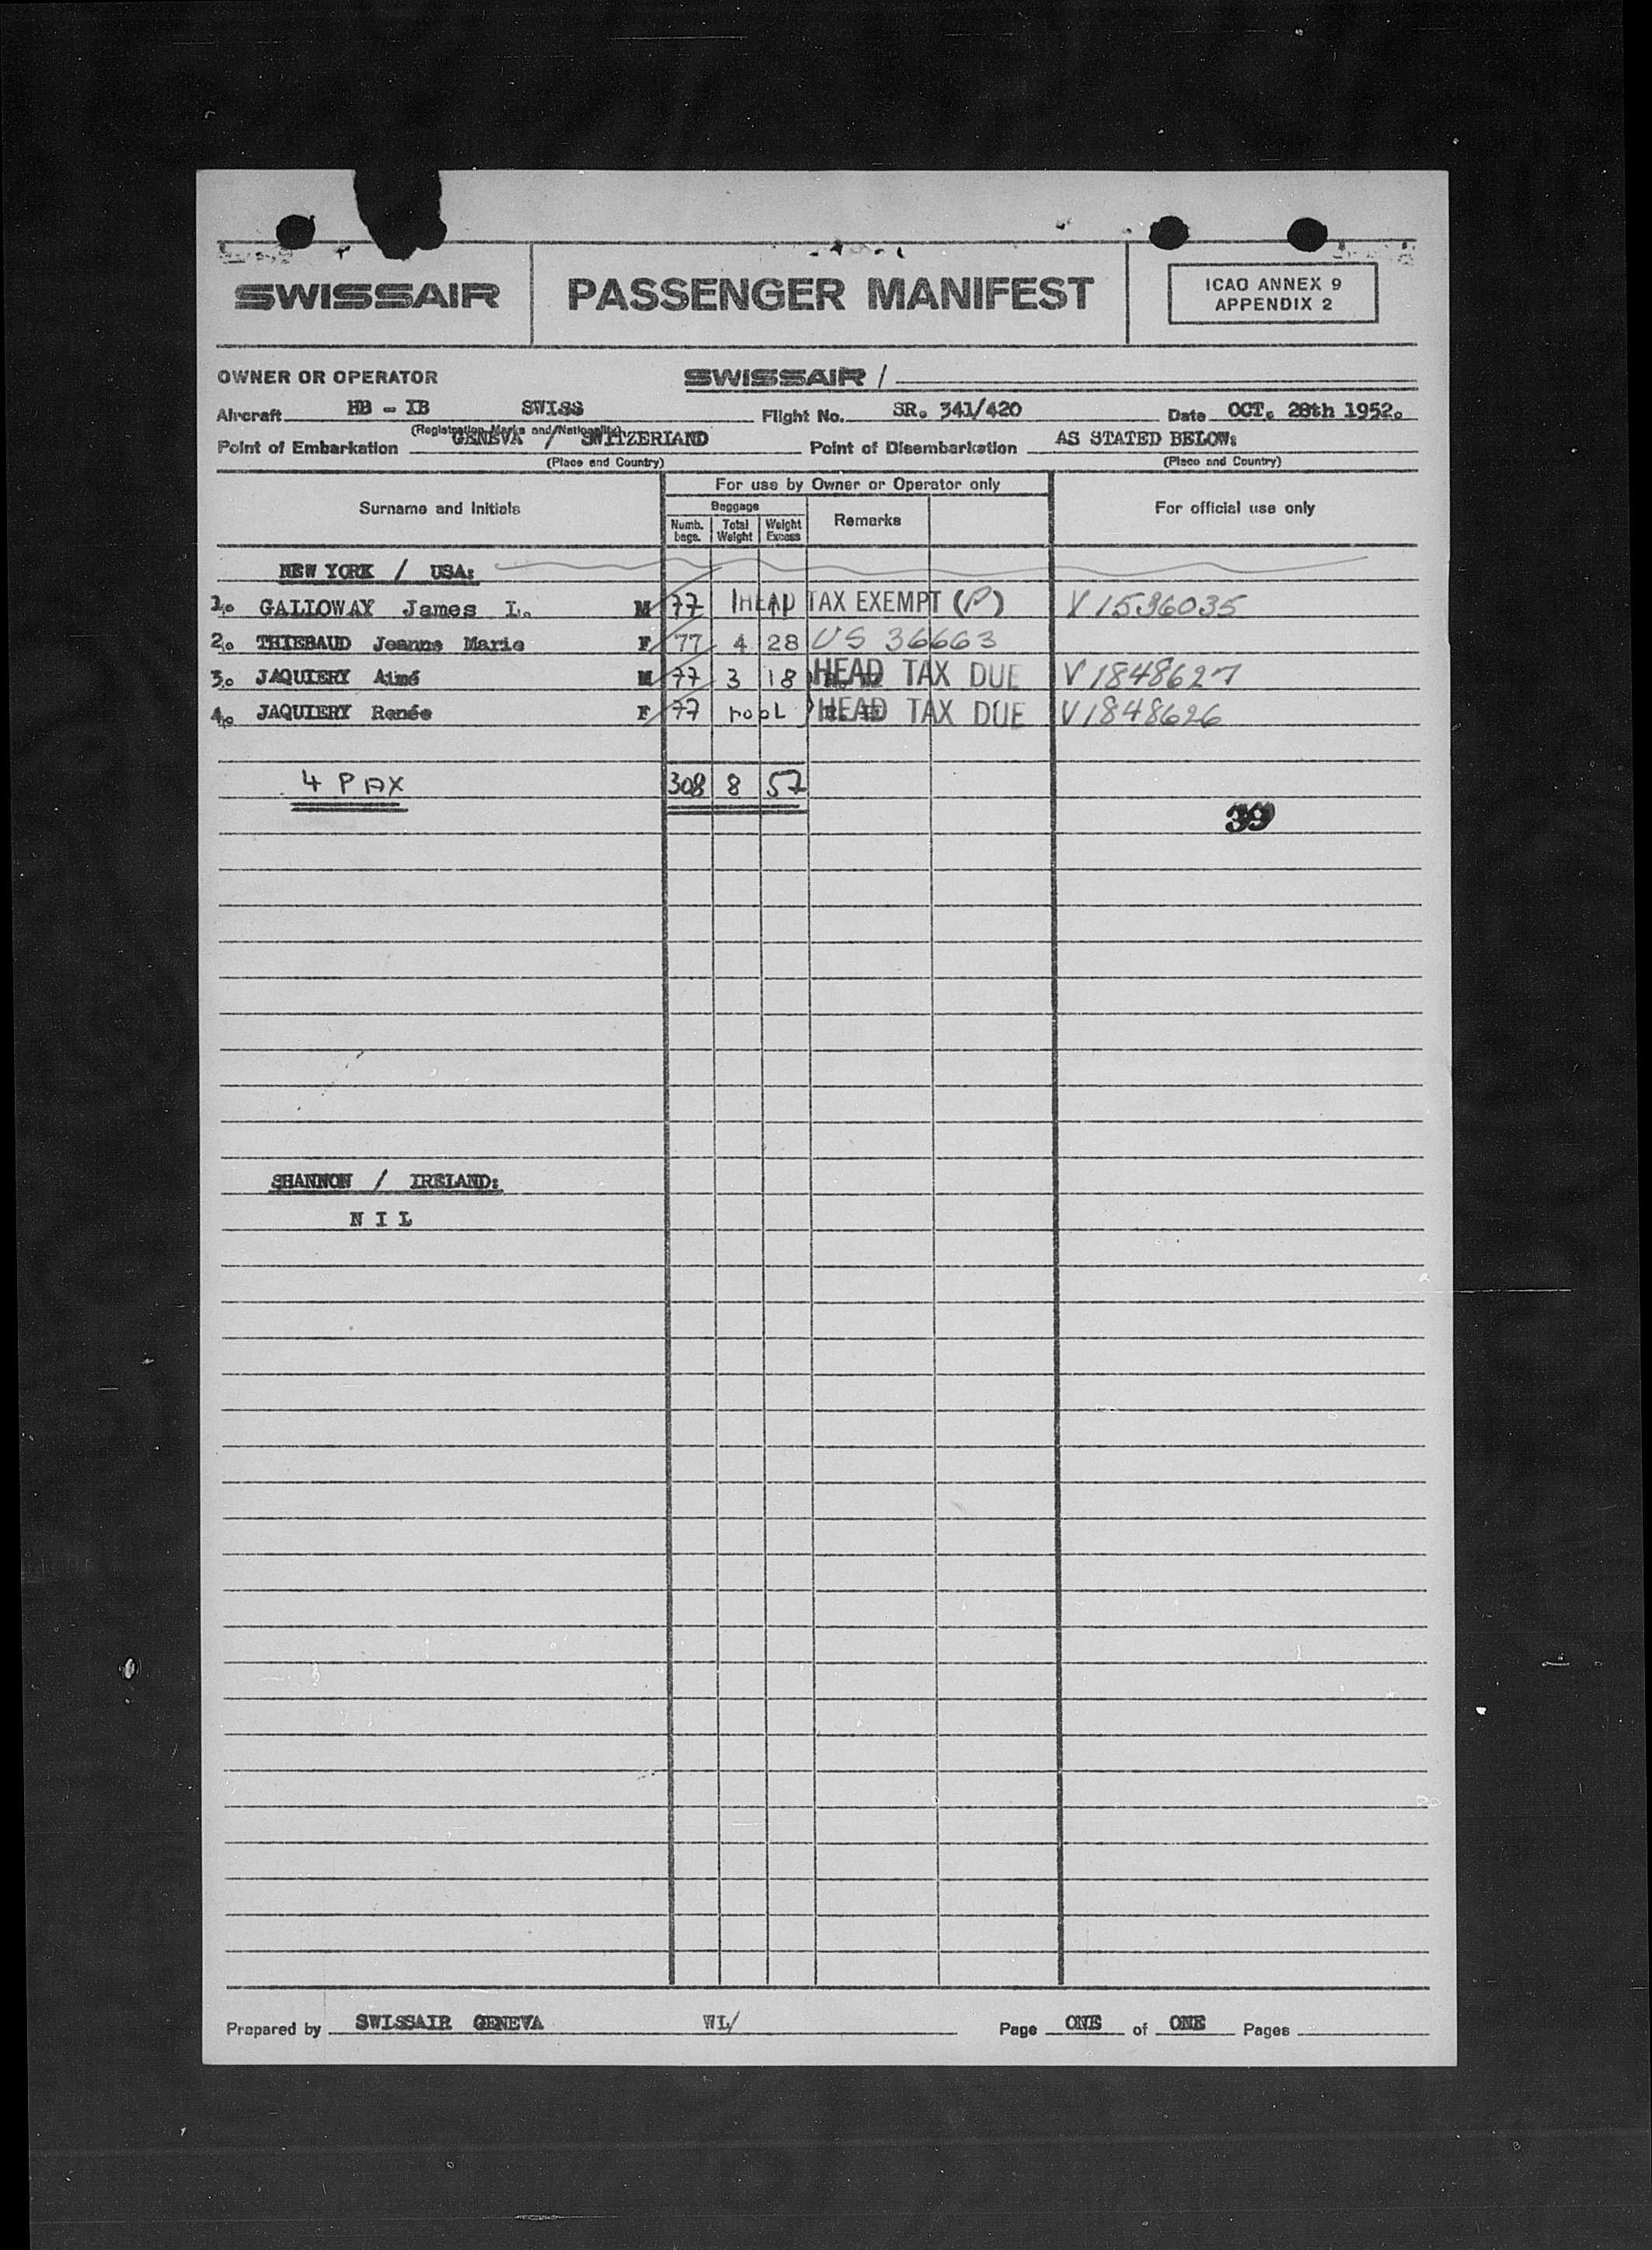 SWISSAIR PASSENGER MANIFEST ICAO ANNEX 9
APPENDIX 2
OWNER OR OPERATOR SWISSAIR /
Aircraft HB - IB SWISS Flight No. SR. 341/420 Date OCT. 28th 1952.
(Registration Marks and Nationality)
Point of Embarkation GENEVA / SWITZERLAND Point of Disembarkation AS STATED BELOW:
(Place and Country) (Place and Country)
For use by Owner or Operator only
Surname and Initials Baggage Remarks For official use only
Numb. bags. Total Weight Weight Excess
NEW YORK / USA:
1. GALLOWAY James L. M 77 HEAD TAX EXEMPT (P) V 1536035
2. THIEBAUD Jeanne Marie F 77 4 28 US 36663
3. JAQUIERY Aimé M 77 3 18 HEAD TAX DUE V 1848627
4. JAQUIERY Renée F 77 POOL HEAD TAX DUE V 1848626
4 PAX 308 8 57
39
SHANNON / IRELAND:
N I L
Prepared by SWISSAIR GENEVA WL/ Page ONE of ONE Pages